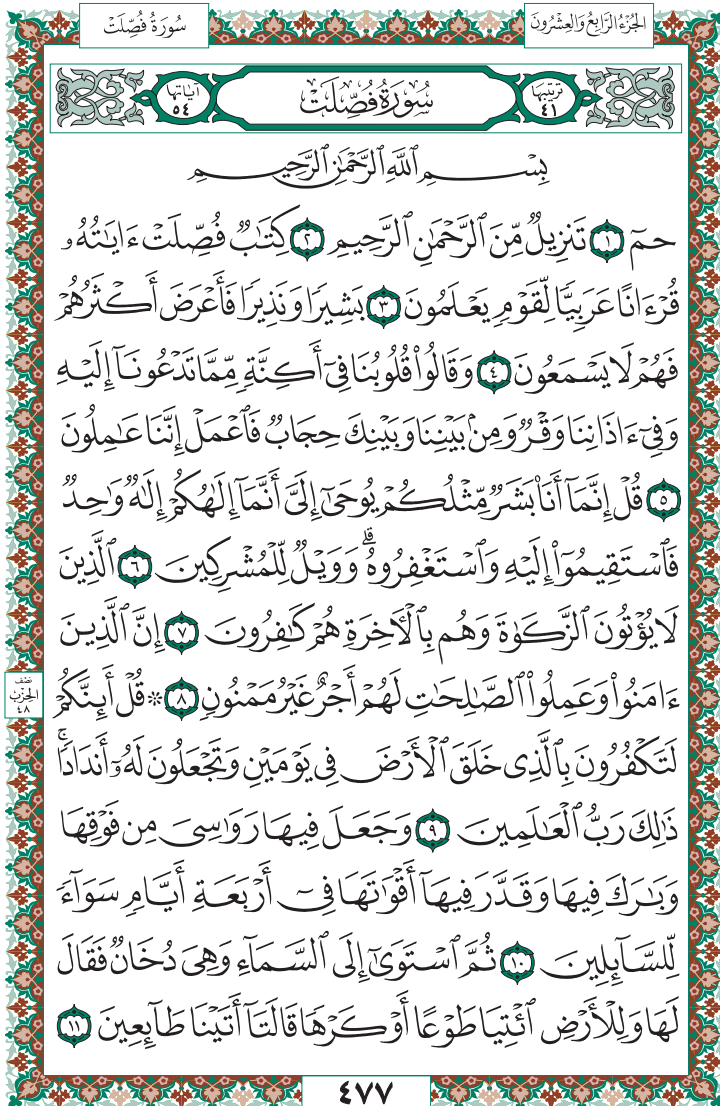 الجُزْءُ الرَّابِعُ وَالعِشْرُونَ
سُورَةُ فُصِّلَتْ
تَرتيبُها ٤١
سُورَةُ فُصِّلَتْ
آياتُها ٥٤
بِسْمِ ٱللَّهِ ٱلرَّحْمَٰنِ ٱلرَّحِيمِ
حمٓ ١ تَنزِيلٌ مِّنَ ٱلرَّحْمَٰنِ ٱلرَّحِيمِ ٢ كِتَٰبٌ فُصِّلَتْ ءَايَٰتُهُۥ
قُرْءَانًا عَرَبِيًّا لِّقَوْمٍ يَعْلَمُونَ ٣ بَشِيرًا وَنَذِيرًا فَأَعْرَضَ أَكْثَرُهُمْ
فَهُمْ لَا يَسْمَعُونَ ٤ وَقَالُوا۟ قُلُوبُنَا فِىٓ أَكِنَّةٍ مِّمَّا تَدْعُونَآ إِلَيْهِ
وَفِىٓ ءَاذَانِنَا وَقْرٌ وَمِنۢ بَيْنِنَا وَبَيْنِكَ حِجَابٌ فَٱعْمَلْ إِنَّنَا عَٰمِلُونَ
٥ قُلْ إِنَّمَآ أَنَا۠ بَشَرٌ مِّثْلُكُمْ يُوحَىٰٓ إِلَىَّ أَنَّمَآ إِلَٰهُكُمْ إِلَٰهٌ وَٰحِدٌ
فَٱسْتَقِيمُوٓا۟ إِلَيْهِ وَٱسْتَغْفِرُوهُ ۗ وَوَيْلٌ لِّلْمُشْرِكِينَ ٦ ٱلَّذِينَ
لَا يُؤْتُونَ ٱلزَّكَوٰةَ وَهُم بِٱلْءَاخِرَةِ هُمْ كَٰفِرُونَ ٧ إِنَّ ٱلَّذِينَ
ءَامَنُوا۟ وَعَمِلُوا۟ ٱلصَّٰلِحَٰتِ لَهُمْ أَجْرٌ غَيْرُ مَمْنُونٍ ٨ ۞ قُلْ أَئِنَّكُمْ
نصف الحزب ٤٨
لَتَكْفُرُونَ بِٱلَّذِى خَلَقَ ٱلْأَرْضَ فِى يَوْمَيْنِ وَتَجْعَلُونَ لَهُۥٓ أَندَادًا ۚ
ذَٰلِكَ رَبُّ ٱلْعَٰلَمِينَ ٩ وَجَعَلَ فِيهَا رَوَٰسِىَ مِن فَوْقِهَا
وَبَٰرَكَ فِيهَا وَقَدَّرَ فِيهَآ أَقْوَٰتَهَا فِىٓ أَرْبَعَةِ أَيَّامٍ سَوَآءً
لِّلسَّآئِلِينَ ١٠ ثُمَّ ٱسْتَوَىٰٓ إِلَى ٱلسَّمَآءِ وَهِىَ دُخَانٌ فَقَالَ
لَهَا وَلِلْأَرْضِ ٱئْتِيَا طَوْعًا أَوْ كَرْهًا قَالَتَآ أَتَيْنَا طَآئِعِينَ ١١
٤٧٧